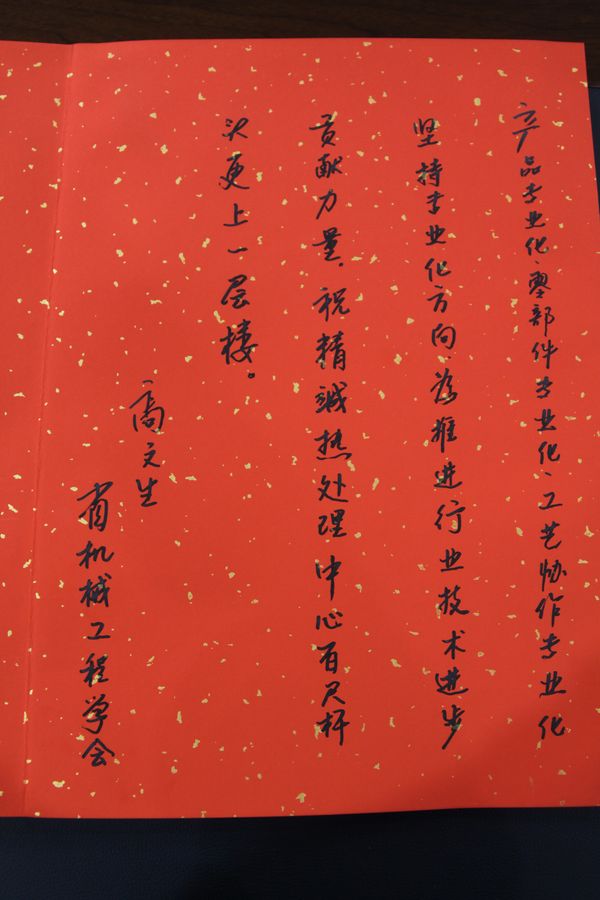 产品专业化、零部件专业化、工艺协作专业化
坚持专业化方向、为推进行业技术进步
贡献力量。祝精诚热处理中心百尺杆
头更上一层楼。
高文生
省机械工程学会